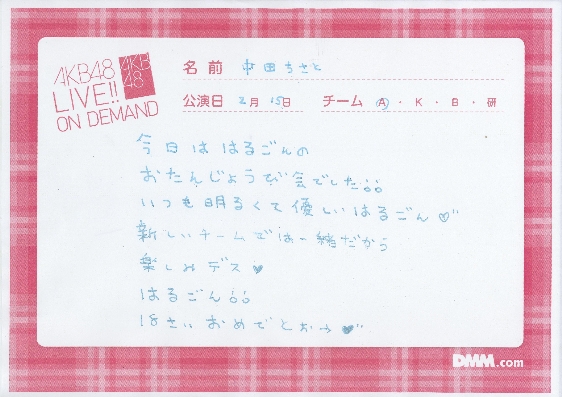 AKB48
LIVE!!
ON DEMAND
AKB
48
名前 中田ちさと
公演日 2月 15日 チーム A・K・B・研
今日は はるごんの
おたんじょうび会でした!!
いつも明るくて優しいはるごん♡
新しいチームでは一緒だから
楽しみデス♥
はるごん!!
18さい おめでとお→♥
DMM.com